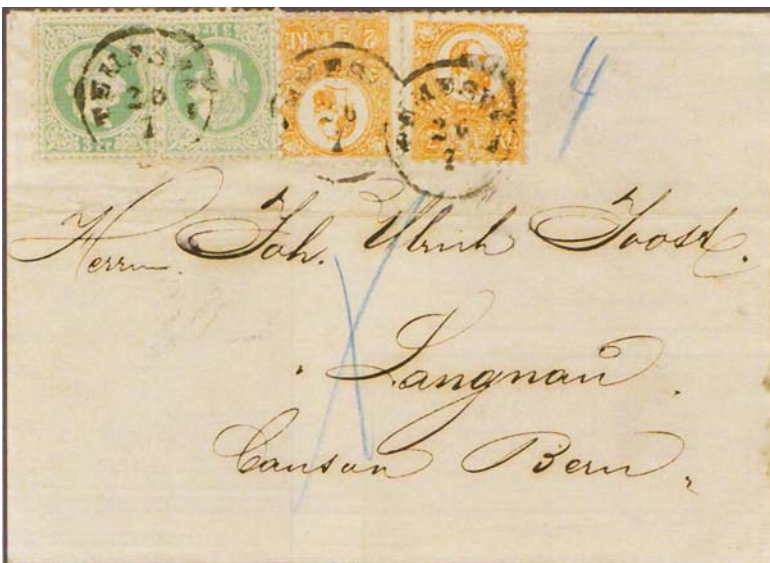 4
TEMESVÁR
26
7
26
7
TEMESVÁR
26
7
Herrn. Joh. Ulrich Joost.
Langnau.
Canton Bern,